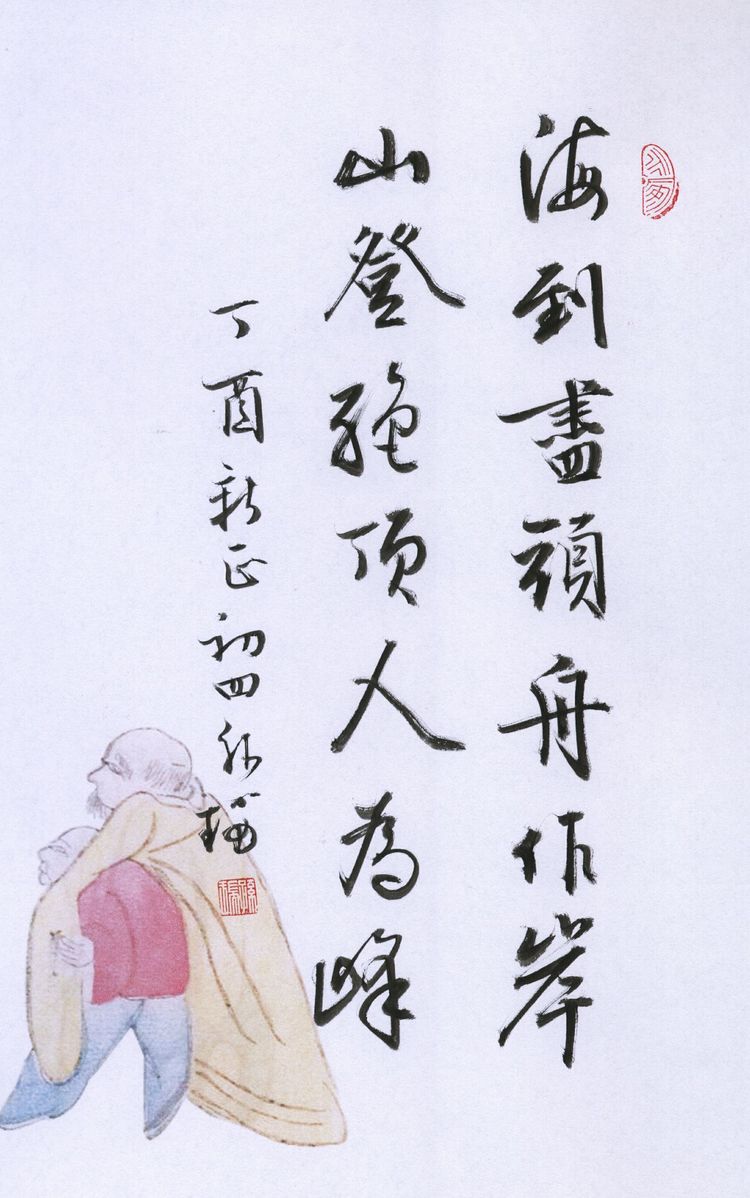 海到盡頭舟作岸
山登絕頂人為峰
丁酉新正初四